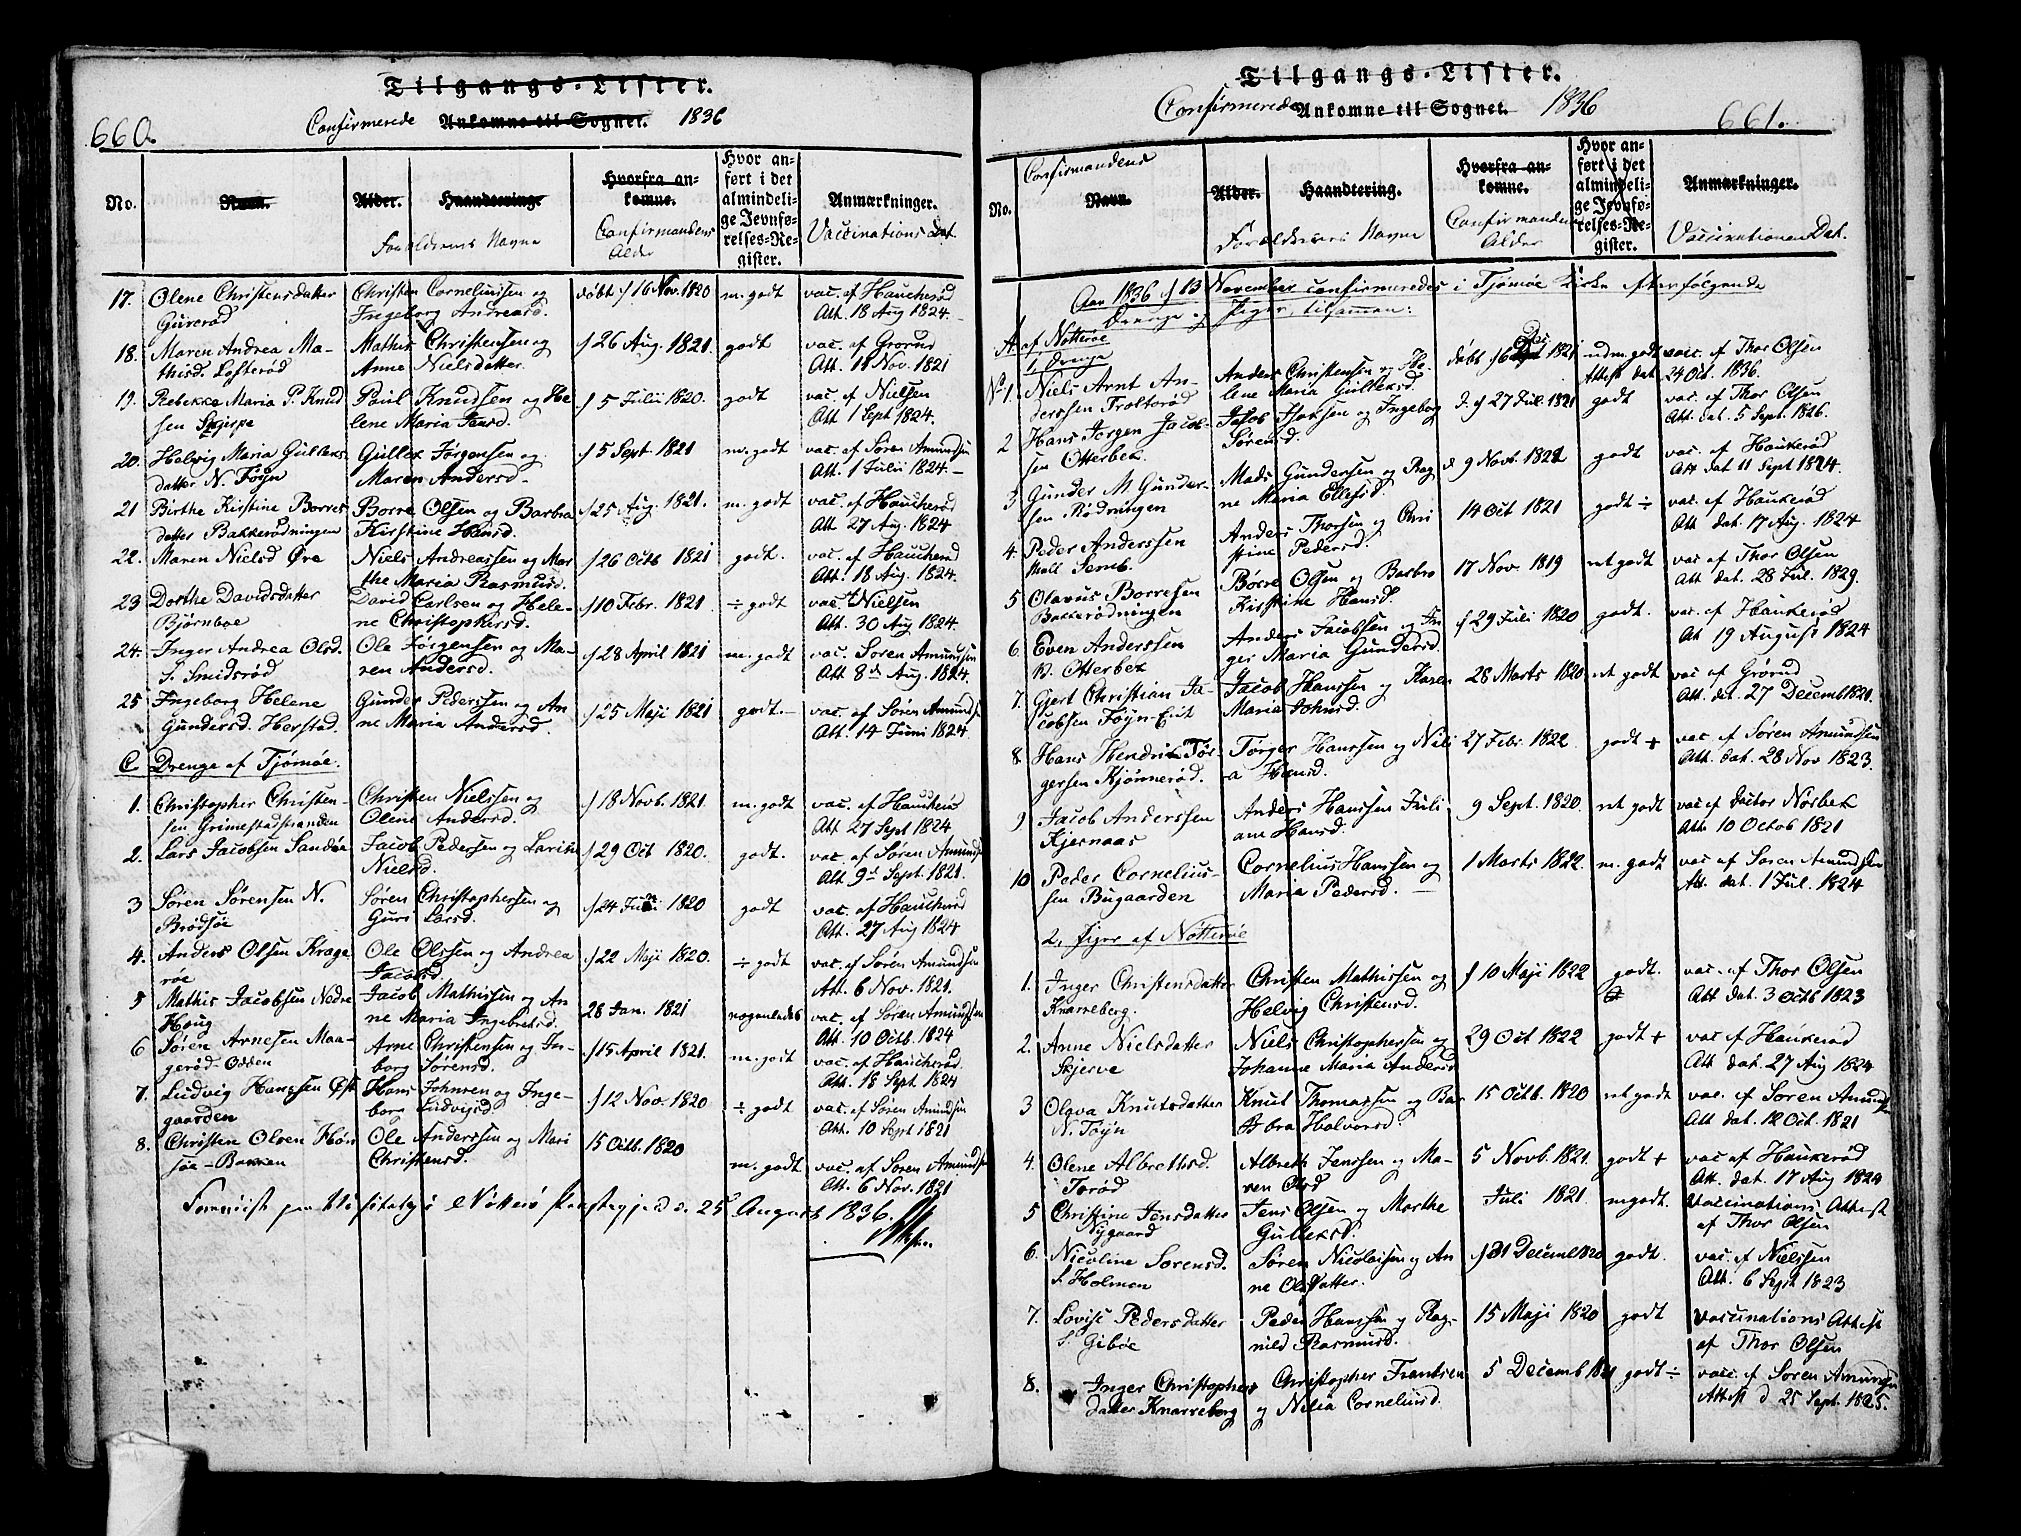 Tilgangs-Lister.
660. Confirmerede Ankomne til Sognet. 1836
No. Navn. Alder. Haandtering. Hvorfra ankomne. Hvor anført i det almindelige Jevnførelses-Register. Anmærkninger.
Forældrenes Navne Confirmandens Alder Vaccinations Dat.
17. Olene Christensdatter Christen Corneliussen og døbt d 16 Nov. 1820 m. godt vac. af Haucherød
Gurerød Ingeborg Andreasd. Att. 18 Aug 1824.
18. Maren Andrea Ma- Mathis Christensen og d 26 Aug. 1821. godt vac. af Grorud
thisd. Lofterød Anne Nielsdatter Att. 11 Nov. 1821
19. Rebekke Maria P. Knud Paul Knudsen og He d 5 Julii 1820. godt vac. af Nielsen
sen Skjerpe lene Maria Att. 1 Sept 1824.
20. Helvig Maria Gulleks Gullek Jørgensen og d 5 Sept. 1821 m. godt vac. af Søren Amundsen
datter N. Føyn Maren Andersd. Att. 1 Julii 1824.
21 Birthe Kirstine Borres Borre Olsen og Barbra d 25 Aug. 1821. m. godt vac. af Haucherød
datter Bakkerødningen Kirstine Hansd. Att. 27 Aug. 1824
22. Maren Nielsd Øre Niels Andreassen og Mar d 26 Octb 1821 godt. vac. af Haucherød
the Maria Rasmusd. Att. 18 Aug. 1824.
23 Dorthe Davidsdatter David Carlsen og Hele- d 10 Febr. 1821 ÷ godt vac. af Nielsen
Bjørnboe ne Christophersd. Att. 30 Aug 1824.
24. Inger Andrea Olsd. Ole Jørgensen og Ma- d 28 April 1821 m. godt vac. Søren Amundsen
S. Smidsrød ren Andersd. Att 8de Aug. 1824.
25 Ingeborg Helene Gunder Pederssen og An d 25 Maji 1821 godt. vac. af Søren Amundsen
Gundersd. Herstad. ne Maria Andersd. Att. 14 Juni 1824
C Drenge af Tjømøe.
1. Christopher Christen- Christen Nielssen og d 18 Novb. 1821. m. godt vac. af Haucherød
sen Grimestadstranden Olene Andersd. Att. 27 Sept 1824
2. Lars Jacobsen Sandøe Jacob Pedersen og Larine d 29 Oct 1820. godt. vac. af Søren Amundsen
Nielsd. Att. 9d Sept. 1821.
3 Søren Sørensen N. Søren Christophersen og d 24 1820 godt vac. af Haucherød
Brødsøe Guri Larsd. Att. 27 Aug 1824
4. Anders Olsen Krage Ole Olssen og Andrea d 22 Maji 1820. ÷ godt vac. af Søren Amundsen
røe Jacobsd. Att. 6 Nov. 1821.
5 Mathis Jacobsen Nedre Jacob Mathissen og An 28 Jan. 1821 nogenledes vac. af Søren Amundsen
Houg ne Maria Ingebretsd. Att. 10 Octb. 1824
6 Søren Arnesen Maa- Arne Christensen og In- d 15 April 1821. m. godt vac. af Haucherød.
gerød-Odden borg Sørensd. Att. 18 Sept. 1824
7. Ludvig Hanssen Øst Hans Johnsen og Inge- d 12 Nov. 1820 ÷ godt vac. af Søren Amundsen
gaarden borg Ludvigsd. Att. 10 Sept 1821
8. Christen Olsen Høn Ole Anderssen og Mari 15 Octb. 1820 m. godt vac. af Søren Amundsen
søe-Bakken Christensd. Att. 6 Nov. 1821
25 August 1836.
Tilgangs-Lister.
Confirmerede Ankomne til Sognet. 1836 661.
No. Navn. Alder. Haandtering. Hvorfra ankomne. Hvor anført i det almindelige Jevnførelses-Register. Anmærkninger.
Confirmandens Forældrenes Navne Confirmandens Alder Vaccinationen Dat.
Aar 1836 d 13 November confirmeredes i Tjømøe Kirke efterfølgende
Drenge og Piger, tilsamen:
A af Nøtterøe
1, Drenge
No 1. Niels Arnt An- Anders Christensen og He- døbt d 6 1821 udm. godt vac. af Thor Olsen
derssen Troltorød lene Maria Gulleksd. Attest dat. 24 Oct. 1836.
2 Hans Jørgen Jacob- Jacob Isaksen og Ingeborg D. d 27 Jul. 1821 godt vac. af Thor Olsen
sen Otterbek Sørensd. Att. dat. 5 Sept. 1826.
3 Gunder M. Gunder- Mads Gundersen og Rag d 9 Novb. 1821 godt vac. af Haukerød
sen Rødningen ne Maria Ellefsd. Att dat 11 Sept 1824.
4. Peder Anderssen Anders Thorsen og Chri 14 Oct 1821 godt ÷ vac. af Haukerød
Mell Semb. stine Pedersd. Att dat. 17 Aug. 1824
5 Olavus Borresen Børre Olsen og Barbro 17 Nov. 1819 nt godt vac. af Thor Olsen
Bakkerødningen Kirstine Hansd. Att dat. 28 Jul. 1829.
6. Even Anderssen Anders Jacobsen og In d 29 Juli 1820 godt. vac. af Haukerød
N. Otterbek ger Maria Gundersd. Att 19 August 1824
7. Gjert Christian Ja- Jacob Hanssen og Karen 28 Marts 1820 nt godt vac. af Grørud
cobsen Føyn-Eiet Maria Johnsd. Att. dat. 27 Decemb 1821.
8 Hans Hendrik Tør- Tørger Hanssen og Nili 27 Febr. 1822. godt + vac. af Søren Amundsen
gersen Kjønnerød. a Hansd. Att. dat. 28 Nov 1823.
9 Jacob Anderssen Anders Hanssen Juli- 9 Sept. 1820. nt godt vac af Doctor Norbek
Kjernaas ane Hansd. Att 10 Octob 1821
10 Peder Cornelius- Cornelius Hanssen og 1 Marts 1822. m. godt vac. af Søren Amundsen
sen Bugaarden Maria Pedersd. Att. dat. 1 Jul. 1824
2, Piger af Nøtterøe
1. Inger Christensdatter Christen Mathissen og d 10 Maji 1822 godt. vac. af Thor Olsen
Knarreberg. Helvig Christensd. Att dat. 3 Octb 1823
2. Anne Nielsdatter Niels Christophersen og 29 Oct 1822 godt + vac. af Haukerød
Skjerve Johanne Maria Andersd Att dat. 27 Aug 1824
3 Olava Knutsdatter Knut Thomassen og Bar 15 Octb. 1820 nt godt vac. af Søren Amundsen
N. Føyn bra Halvorsd. Att dat. 12 Oct. 1821
4. Olene Albretsd. Albreth Jenssen og Ma- 5 Novb. 1821. godt + vac. af Haukerød
Torød ren Olsd Att. dat. 17 Aug 1824
5 Christine Jensdatter Jens Olsen og Marthe Juli 1821 m godt. Vaccinations Attest
Nygaard Gulleksd. af Thor Olsen
6. Nicoline Sørensd. Søren Nicolaisen og An d 31 Decemb 1820 godt. vac. af Nielssen
S. Holmen ne Olsdatter. Att. 6 Sept 1823
7. Lovise Pedersdatter Peder Hanssen og Rag- 15 Maji 1820 godt Vaccinations Attest
S. Gibøe nild Rasmusd. af Thor Olsen
8. Inger Christophers Christopher Frantsen 5 Decemb 1821 godt ÷ vac. af Søren Amundsen
datter Knarreberg og Nilia Corneliusd. Attest d 25 Sept. 1825.